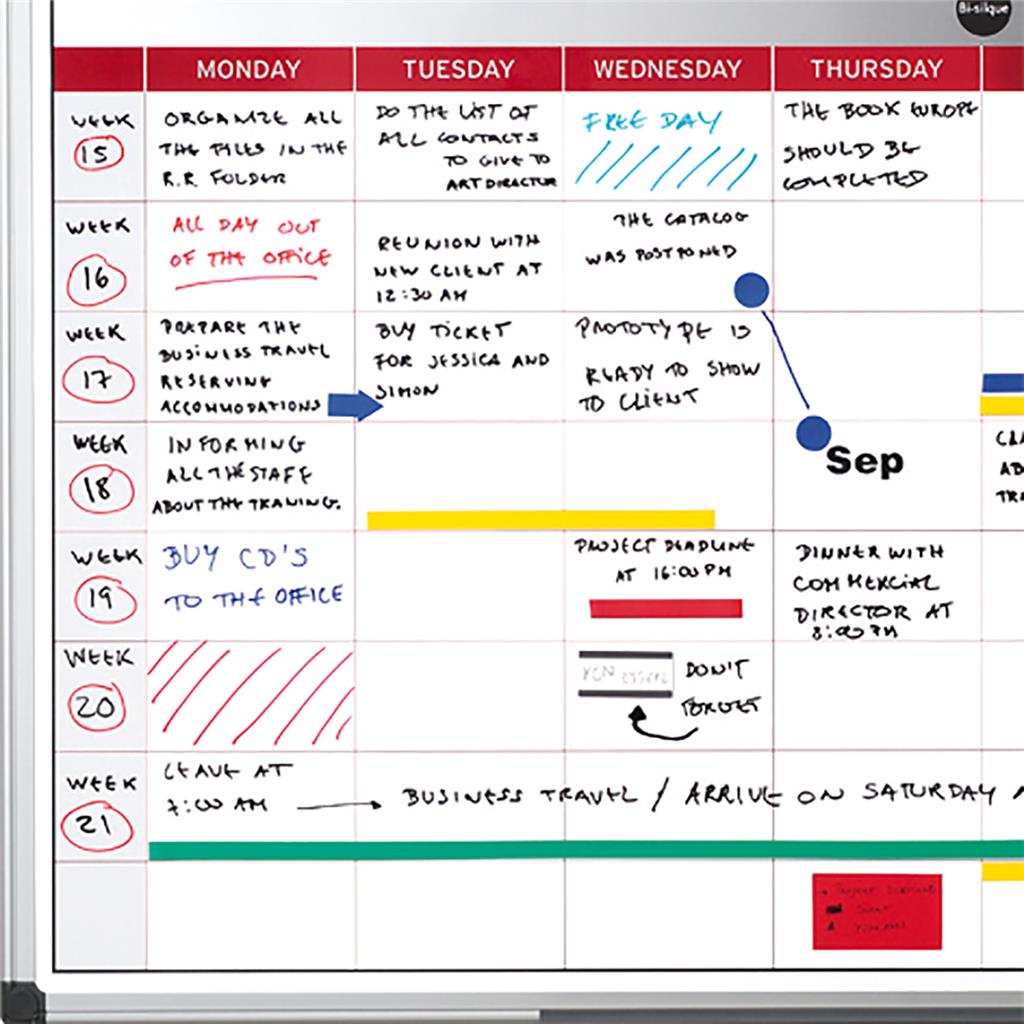 Bi-silque
MONDAY TUESDAY WEDNESDAY THURSDAY
WEEK
15
ORGANIZE ALL
THE FILES IN THE
R.R FOLDER
DO THE LIST OF
ALL CONTACTS
TO GIVE TO
ART DIRECTOR
FREE DAY
THE BOOK EUROPE
SHOULD BE
COMPLETED
WEEK
16
ALL DAY OUT
OF THE OFFICE
REUNION WITH
NEW CLIENT AT
12:30 AM
THE CATALOG
WAS POSTPONED
WEEK
17
PREPARE THE
BUSINESS TRAVEL
RESERVING
ACCOMMODATIONS
BUY TICKET
FOR JESSICA AND
SIMON
PROTOTYPE IS
READY TO SHOW
TO CLIENT
WEEK
18
INFORMING
ALL THE STAFF
ABOUT THE TRANING.
Sep
WEEK
19
BUY CD'S
TO THE OFFICE
PROJECT DEADLINE
AT 16:00 PM
DINNER WITH
COMMERCIAL
DIRECTOR AT
8:00 PM
WEEK
20
DON'T
FORGET
WEEK
21
LEAVE AT
7:00 AM
BUSINESS TRAVEL / ARRIVE ON SATURDAY